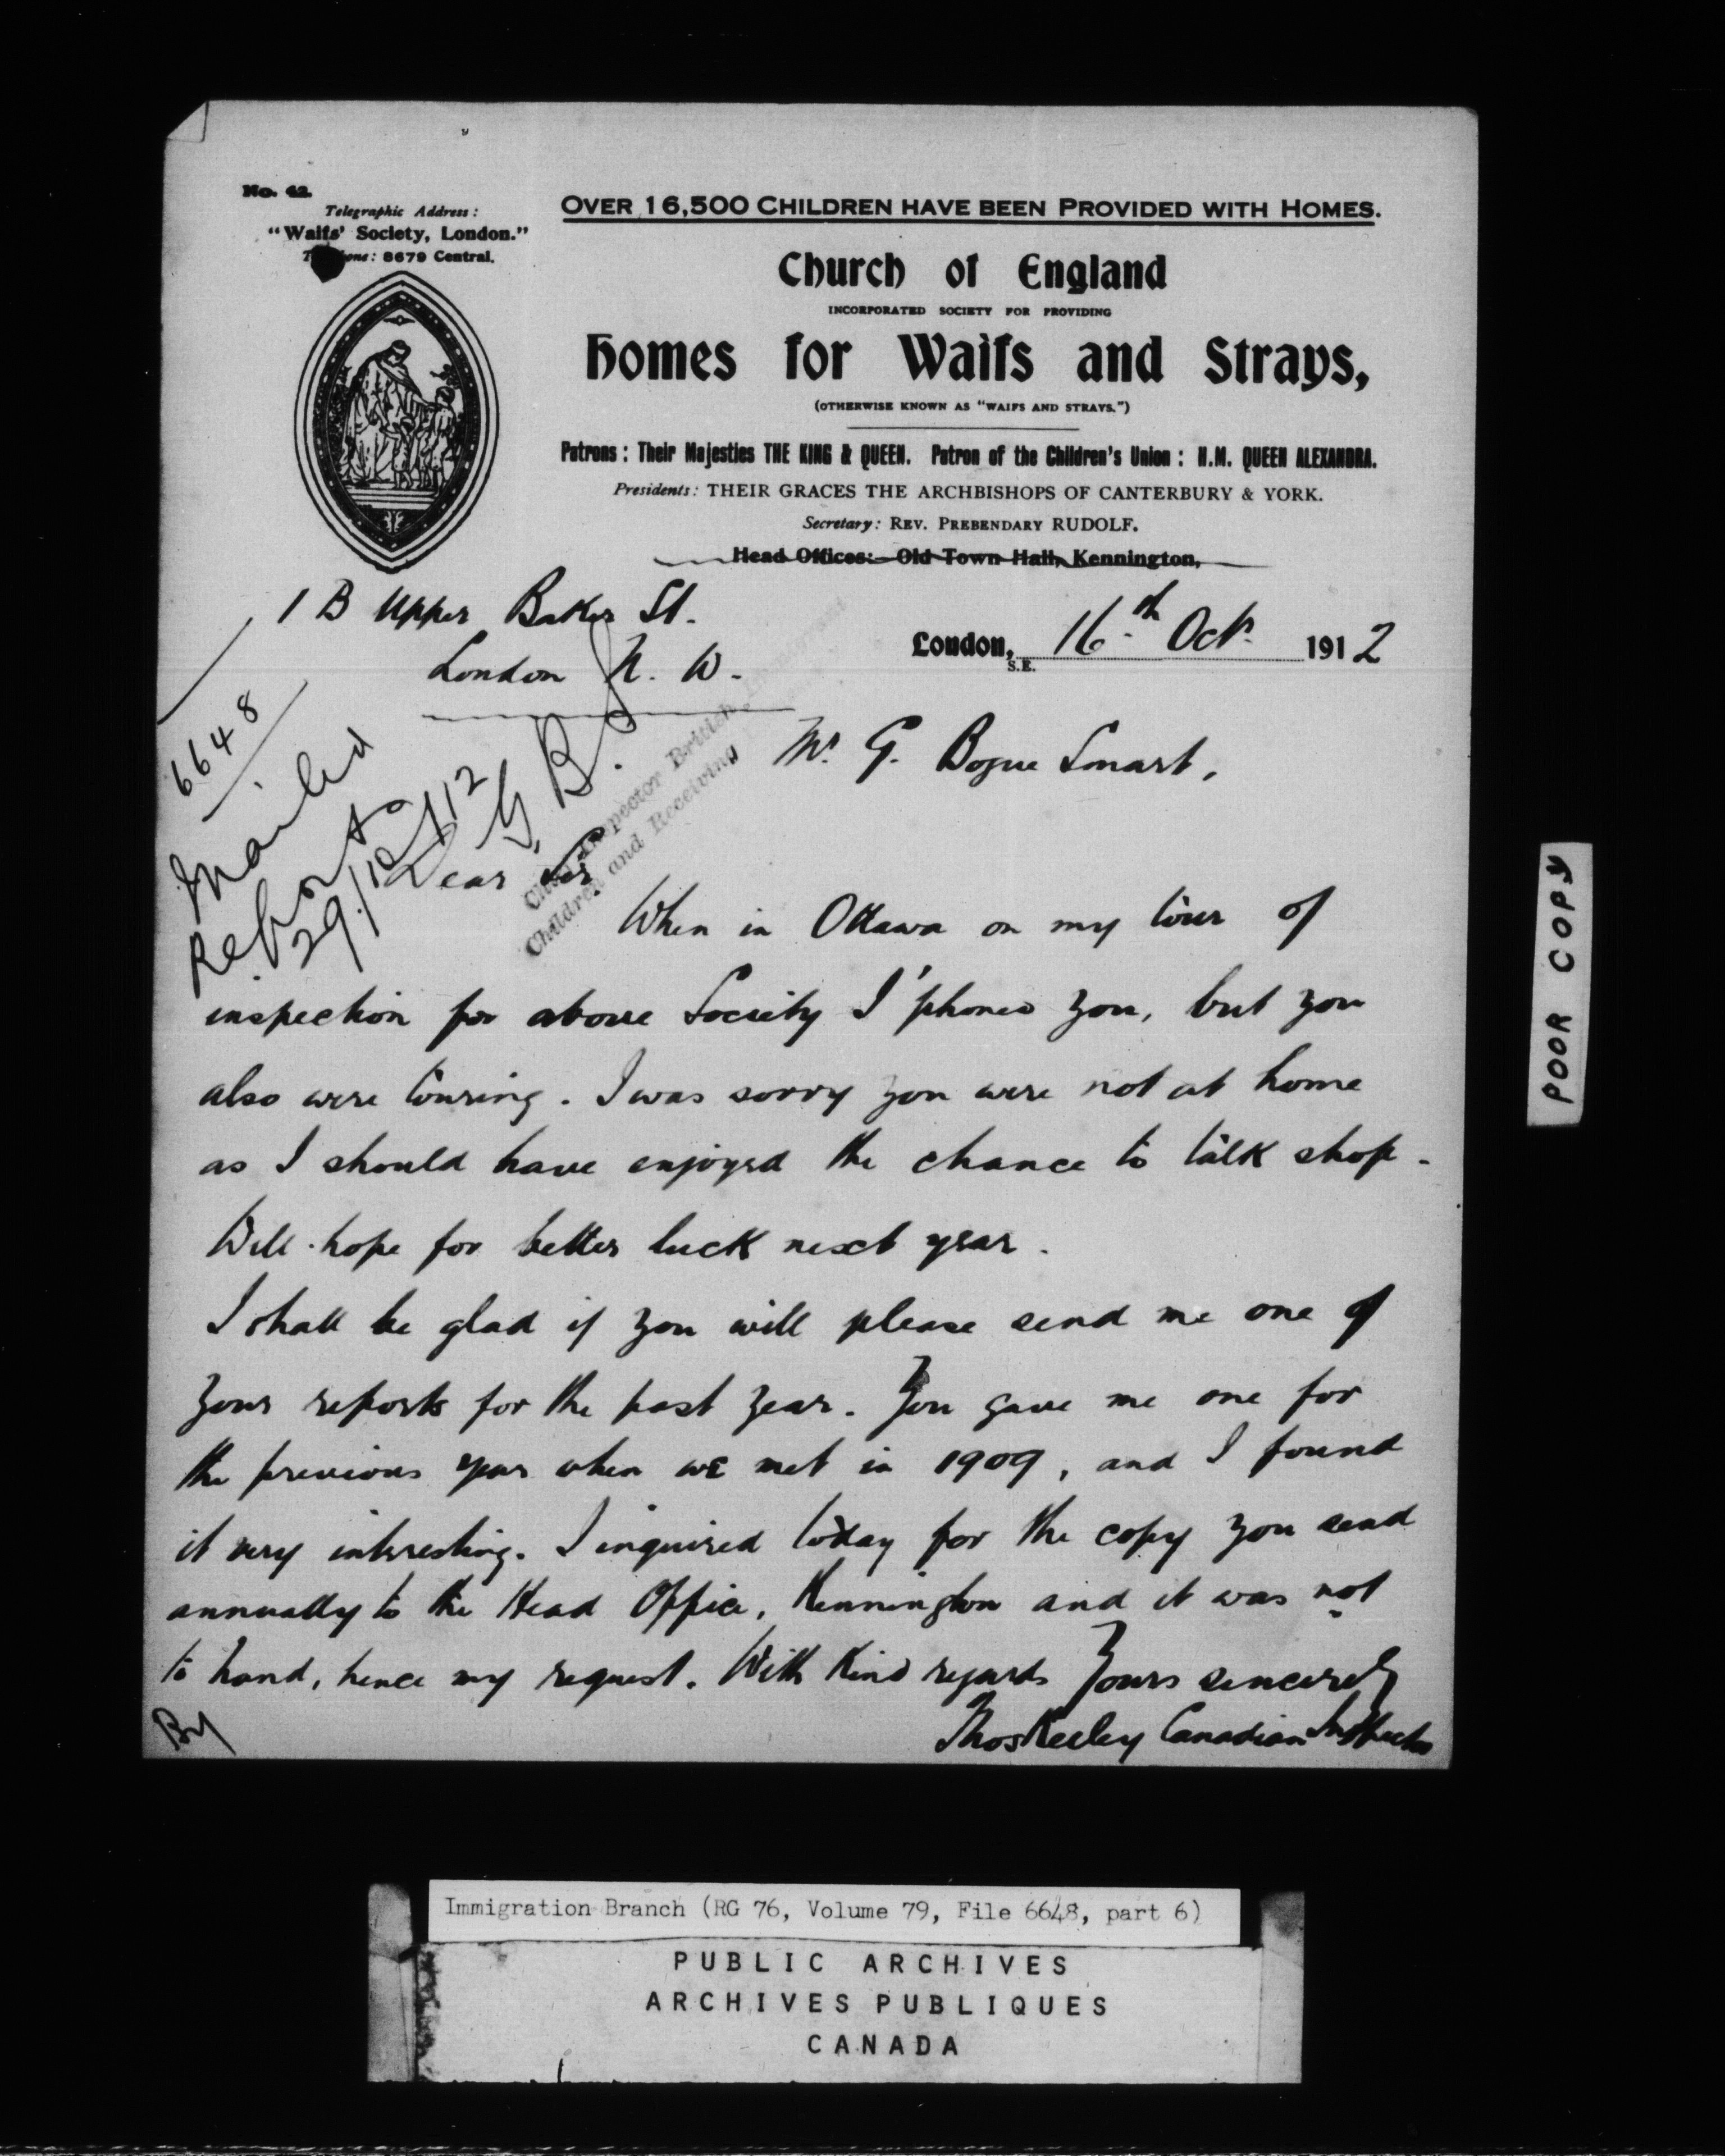 No. 42.
Telegraphic Address:
"Waifs' Society, London."
8679 Central.
OVER 16,500 CHILDREN HAVE BEEN PROVIDED WITH HOMES.
Church of England
INCORPORATED SOCIETY FOR PROVIDING
Homes for Waifs and Strays,
(OTHERWISE KNOWN AS "WAIFS AND STRAYS.")
Patrons: Their Majesties THE KING & QUEEN. Patron of the Children's Union: H.M. QUEEN ALEXANDRA.
Presidents: THEIR GRACES THE ARCHBISHOPS OF CANTERBURY & YORK.
Secretary: REV. PREBENDARY RUDOLF.
Head Offices:—Old Town Hall, Kennington,
1 B Upper Baker St.
London N. W.
London, S.E. 16th Oct. 1912
6648
Mailed
Report
29/10/12
G B S
Chief Inspector British Immigrant
Children and Receiving
Mr. G. Bogue Smart,
Dear Sir
When in Ottawa on my tour of
inspection for above Society I 'phoned you, but you
also were touring. I was sorry you were not at home
as I should have enjoyed the chance to talk shop -
Will hope for better luck next year.
I shall be glad if you will please send me one of
your reports for the past year. You gave me one for
the previous year when we met in 1909, and I found
it very interesting. I inquired today for the copy you send
annually to the Head Office, Kennington and it was not
to hand, hence my request. With kind regards Yours sincerely
Thos Keeley Canadian Inspector
POOR COPY
Immigration Branch (RG 76, Volume 79, File 6648, part 6)
PUBLIC ARCHIVES
ARCHIVES PUBLIQUES
CANADA